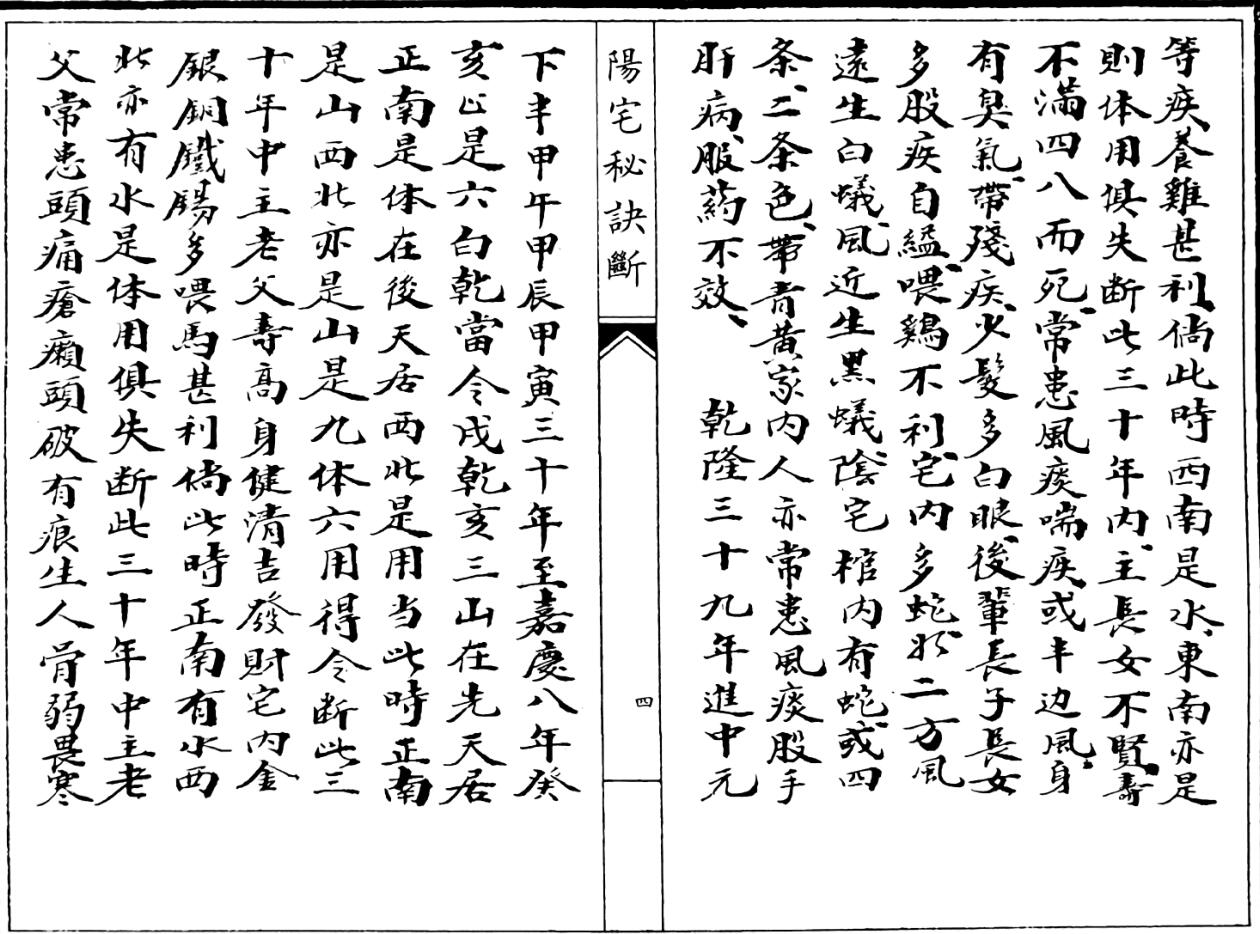 等疾、養雞甚利、倘此時西南是水、東南亦是
則体用俱失断此三十年内、主長女不賢、壽
不滿四八而死、常患風痰喘疾、或半边風、身
有臭氣、帶殘疾、少髮多白眼、後輩長子長女
多股疾自縊、喂鷄不利、宅内多蛇於二方風
遠生白蟻、風近生黑蟻、陰宅棺内有蛇或四
条、二条色、帶青黄家内人亦常患風痰股手
肝病、服葯不效、　乾隆三十九年進中元
陽宅秘訣斷
四
下半甲午甲辰甲寅三十年至嘉慶八年癸
亥止是六白乾當令戌乾亥三山在先天居
正南是体在後天居西北是用当此時正南
是山西北亦是山是九体六用得令断此三
十年中主老父壽高身健清吉發財宅内金
銀銅鐵錫多喂馬甚利倘此時正南有水西
北亦有水是体用俱失断此三十年中主老
父常患頭痛瘡癩頭破有痕生人骨弱畏寒